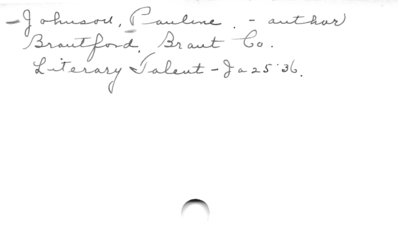 - Johnson, Pauline. - author
Brantford, Brant Co.
Literary Talent - Ja 25 '36.